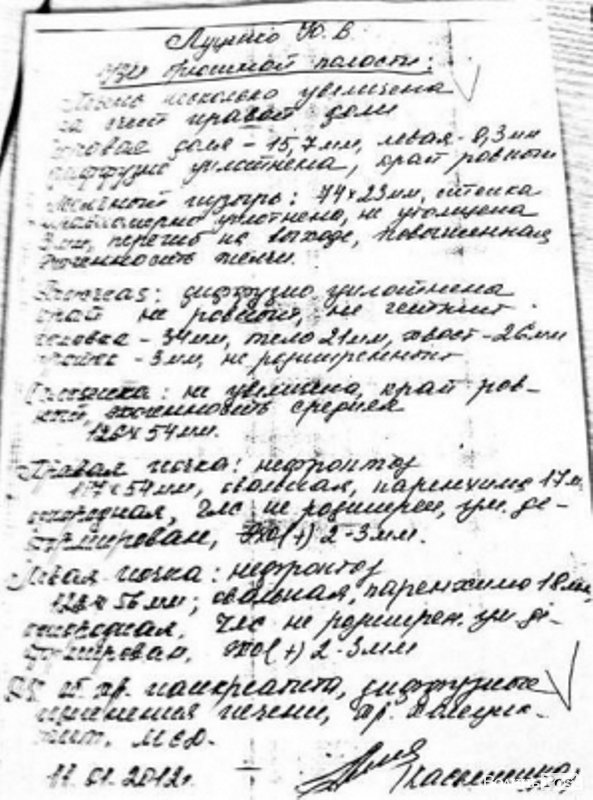 Луценко Ю. В.
УЗИ брюшной полости:
Печень несколько увеличена
за счет правой доли
правая доля - 15,7мм, левая - 8,3мм
диффузно уплотнена, край ровный
Желчный пузырь: 74х23мм, стенка
равномерно уплотнена, не утолщена
3мм, перегиб на выходе, повышенная
эхогенность желчи.
Pancreas: диффузно уплотнена
край не ровный, не четкий.
головка - 34мм, тело 21мм, хвост - 26мм
проток - 3мм, не расширен
Селезенка: не увеличена, край ров-
ный, эхогенность средняя
126х54мм.
Правая почка: нефроптоз
117х54мм, овальная, паренхима 17м
однородная, члс не расширен, ум. де-
формирован, эхо(+) 2-3мм.
Левая почка: нефроптоз
128х56мм; овальная, паренхима 18мм,
однородная, Члс не расширен. ум. де-
формирован. эхо(+) 2-3мм
DS об. хр. панкреатита, диффузные
изменения печени, хр. холецис-
тит. МСД.
11.01.2012г.